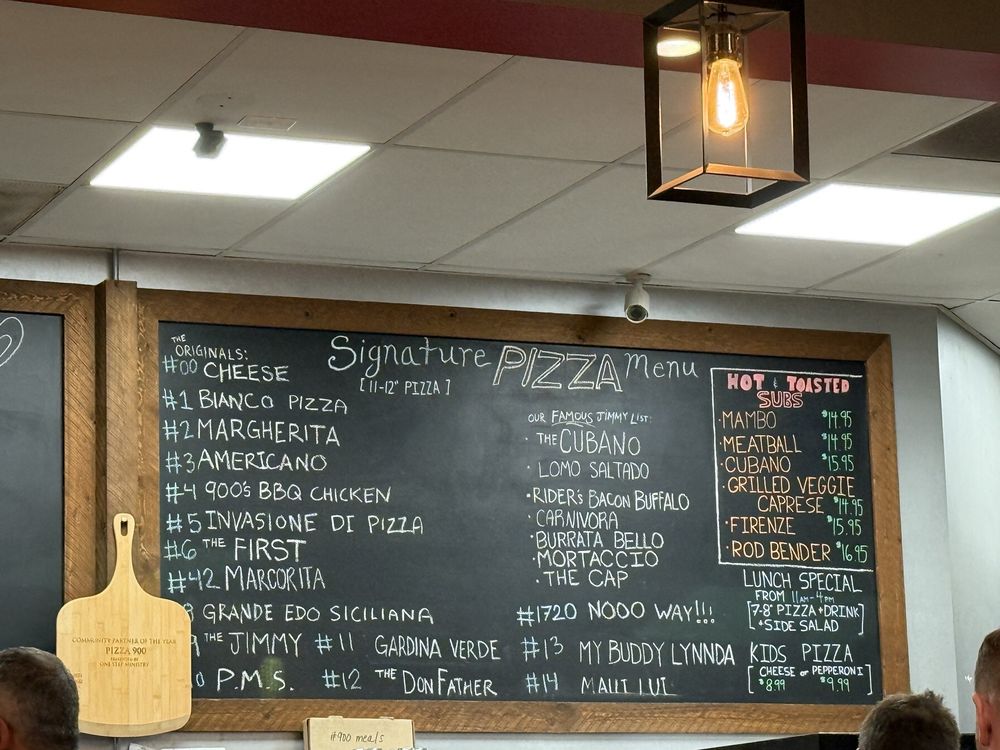 THE
ORIGINALS:
#00 CHEESE
#1 BIANCO PIZZA
#2 MARGHERITA
#3 AMERICANO
#4 900's BBQ CHICKEN
#5 INVASIONE DI PIZZA
#6 THE FIRST
#42 MARGORITA
8 GRANDE EDO SICILIANA
9 THE JIMMY
0 P.M.S.
Signature PIZZA Menu
[11-12" PIZZA]
#11 GARDINA VERDE
#12 THE DON FATHER
OUR FAMOUS JIMMY LIST:
• THE CUBANO
• LOMO SALTADO
• RIDER'S BACON BUFFALO
• CARNIVORA
• BURRATA BELLO
• MORTACCIO
• THE CAP
#1720 NOOO WAY!!!
#13 MY BUDDY LYNNDA
#14 MAUI LUI
HOT & TOASTED
SUBS
• MAMBO $14.95
• MEATBALL $14.95
• CUBANO $15.95
• GRILLED VEGGIE
CAPRESE $14.95
• FIRENZE $15.95
• ROD BENDER $16.95
LUNCH SPECIAL
FROM 11AM-4PM
[7-8" PIZZA + DRINK
+ SIDE SALAD]
KIDS PIZZA
[CHEESE or PEPPERONI]
$8.99 $9.99
COMMUNITY PARTNER OF THE YEAR
PIZZA 900
PRESENTED BY
ONE STEP MINISTRY
#900 meals